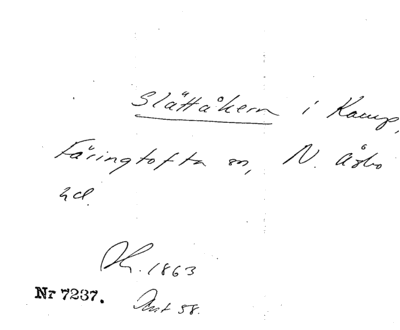 Slättåkern i Kamp,
Färingtofta sn, N. Åsbo
hd.
1863
Nr 7237. 58.